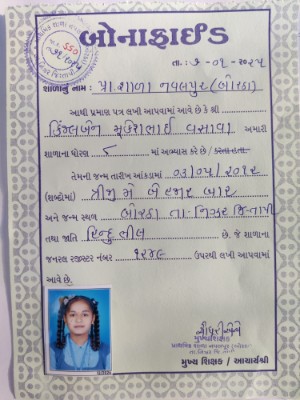 બોનાફાઈડ
તા. : ૭-૦૧-૨૦૨૫
શાળાનું નામ : પ્રા શાળા નવલપુર (બોરઠા)
આથી પ્રમાણ પત્ર લખી આપવામાં આવે છે કે શ્રી
મુકેશભાઈ વસાવા અમારી
શાળાના ધોરણ ૮ માં અભ્યાસ કરે છે / કરતા હતા.
તેમની જન્મ તારીખ આંકડામાં ૦૩/૦૫/૨૦૧૨
(શબ્દોમાં) ત્રીજી મે બે હજાર બાર
અને જન્મ સ્થળ બોરઠા તા-નિઝર જિ-તાપી
તથા જાતિ હિન્દુ ભીલ છે. જે શાળાના
જનરલ રજીસ્ટર નંબર ૧૨૪૯ ઉપરથી લખી આપવામાં
આવે છે.
મુખ્યશિક્ષક
મુખ્ય શિક્ષક / આચાર્યશ્રી